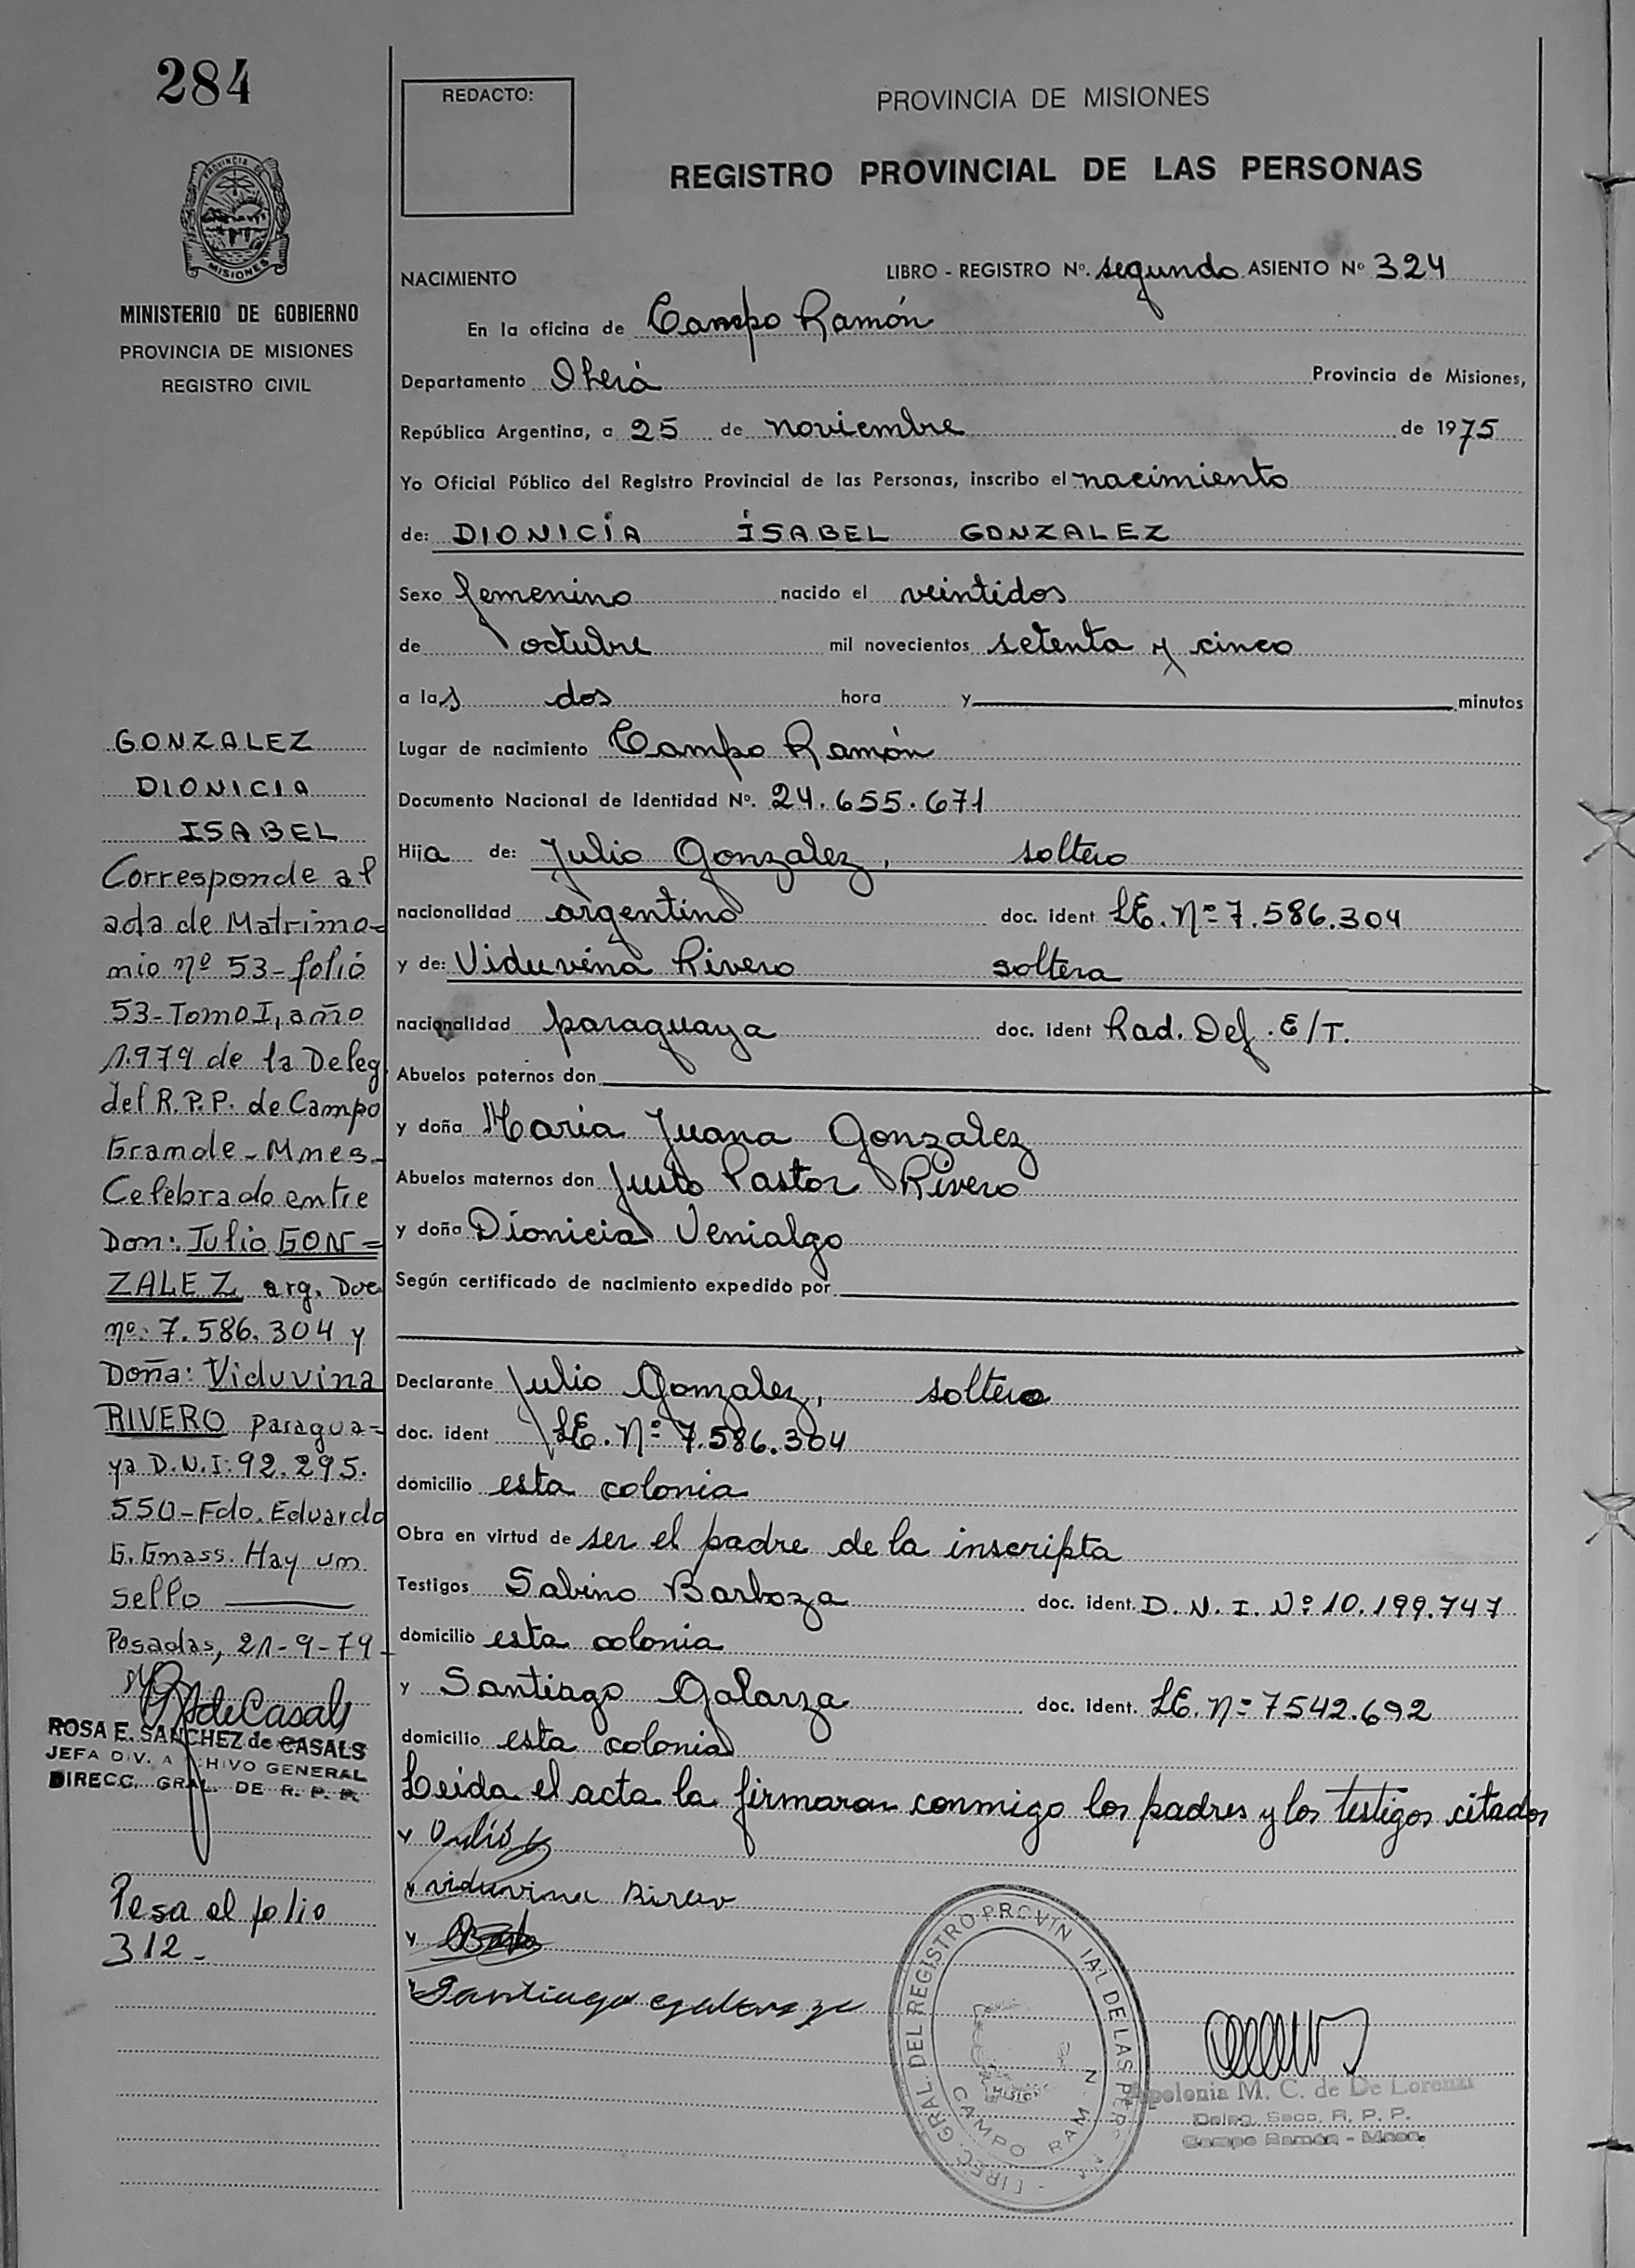 284
PROVINCIA DE
MISIONES
MINISTERIO DE GOBIERNO
PROVINCIA DE MISIONES
REGISTRO CIVIL
GONZALEZ
DIONICIA
ISABEL
Corresponde al
acta de Matrimo=
nio nº 53-folio
53-Tomo I, año
1.979 de la Deleg.
del R.P.P. de Campo
Grande-Mnes-
Celebrado entre
Don: Julio GON=
ZALEZ arg. Doc
nº: 7.586.304 y
Doña: Viduvina
RIVERO paragua=
ya D.N.I: 92.295.
550-Fdo. Eduardo
G. Gnass. Hay un
sello
Posadas, 21-9-79-
deCasals
ROSA E. SANCHEZ de CASALS
JEFA DIV. A CHIVO GENERAL
DIRECC. GRAL. DE R. P. P.
Pasa al folio
312-
REDACTO:
PROVINCIA DE MISIONES
REGISTRO PROVINCIAL DE LAS PERSONAS
NACIMIENTO LIBRO - REGISTRO Nº. segundo ASIENTO Nº 324
En la oficina de Campo Ramón
Departamento Oberá Provincia de Misiones,
República Argentina, a 25 de noviembre de 1975
Yo Oficial Público del Registro Provincial de las Personas, inscribo el nacimiento
de: DIONICIA ISABEL GONZALEZ
Sexo femenino nacido el veintidos
de octubre mil novecientos setenta y cinco
a las dos hora y minutos
Lugar de nacimiento Campo Ramón
Documento Nacional de Identidad Nº. 24.655.671
Hija de: Julio Gonzalez, soltero
nacionalidad argentino doc. ident LE. Nº 7.586.304
y de: Viduvina Rivero soltera
nacionalidad paraguaya doc. ident Rad. Def. E/T.
Abuelos paternos don
y doña Maria Juana Gonzalez
Abuelos maternos don Justo Pastor Rivero
y doña Dionicia Venialgo
Según certificado de nacimiento expedido por
Declarante Julio Gonzalez, soltero
doc. ident LE. Nº 7.586.304
domicilio esta colonia
Obra en virtud de ser el padre de la inscripta
Testigos Sabino Barboza doc. ident. D. N. I. Nº 10.199.747
domicilio esta colonia
y Santiago Galarza doc. ident. LE. Nº 7542.692
domicilio esta colonia
Leida el acta la firmaran conmigo los padres y los testigos citados
Julio G
viduvina Rivero
Santiago galarza
DIREC. GRAL. DEL REGISTRO PROVIN IAL DE LAS PER
CAMPO RAM N
Apolonia M. C. de De Lorenzi
Deleg. Secc. R. P. P.
Campo Ramón - Mnes.